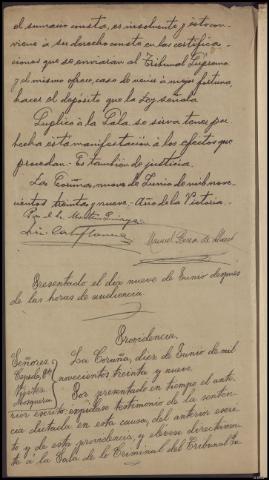 el sumario consta, es insolvente y si con-
viene a su derecho consta en las certifica-
ciones que se enviaran al Tribunal Supremo
y el mismo ofrece, caso de venir a mejor fortuna,
hacer el depósito que la Ley señala.
Suplico a la Sala se sirva tener por
hecha esta manifestación a los efectos que
procedan. Es tambien de justicia.
La Coruña, nueve de Junio de mil nove-
cientos treinta y nueve. Año de la Victoria.
Manuel
Presentado el dia nueve de Junio despues
de las horas de audiencia.
Providencia.
Señores La Coruña, diez de Junio de mil
novecientos treinta y nueve.
Por presentado en tiempo el ante-
rior escrito: expídase testimonio de la senten-
cia dictada en esta causa, del anterior escri-
to y de esta providencia, y elévese directamen-
te a la Sala de lo Criminal del Tribunal Su-